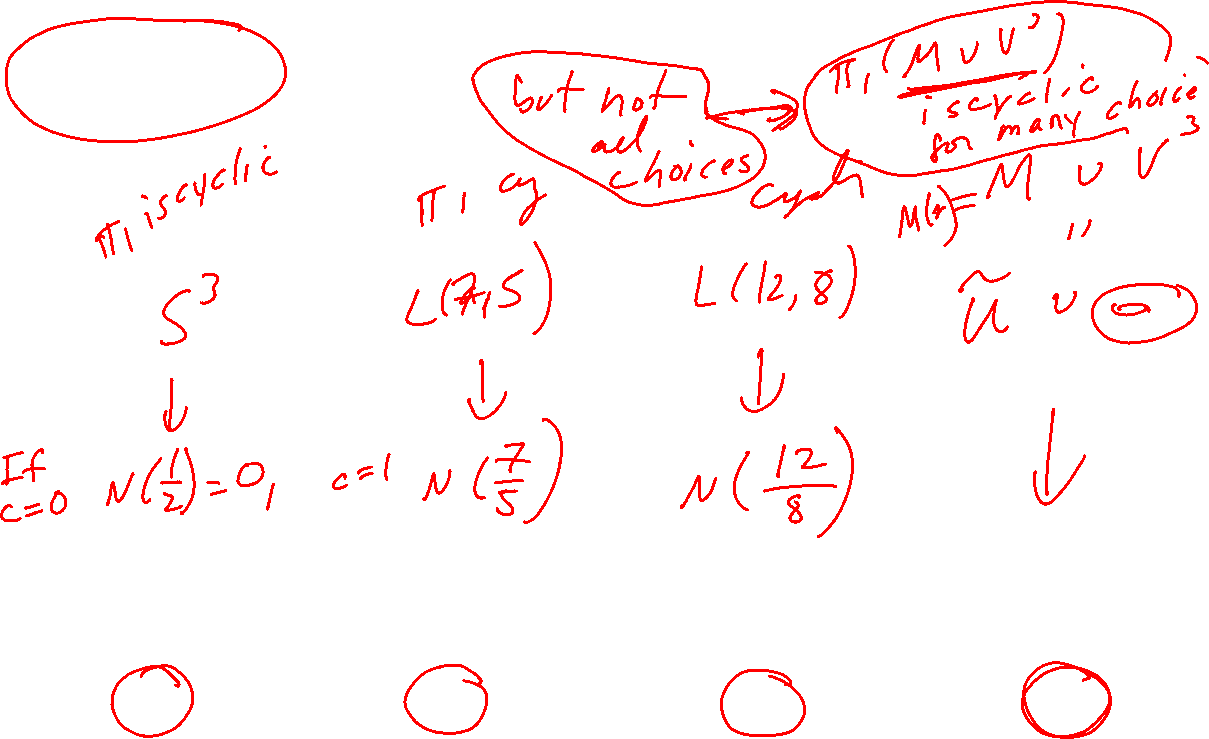 but not
all
choices
π₁(M ∪ V³)
is cyclic
for many choice
π₁ is cyclic
π₁ cy
M(r)= M ∪ V³
"
S³
L(7,5)
L(12,8)
Ũ ∪
If
c=0 N(1/2)=0,
c=1 N(7/5)
N(12/8)